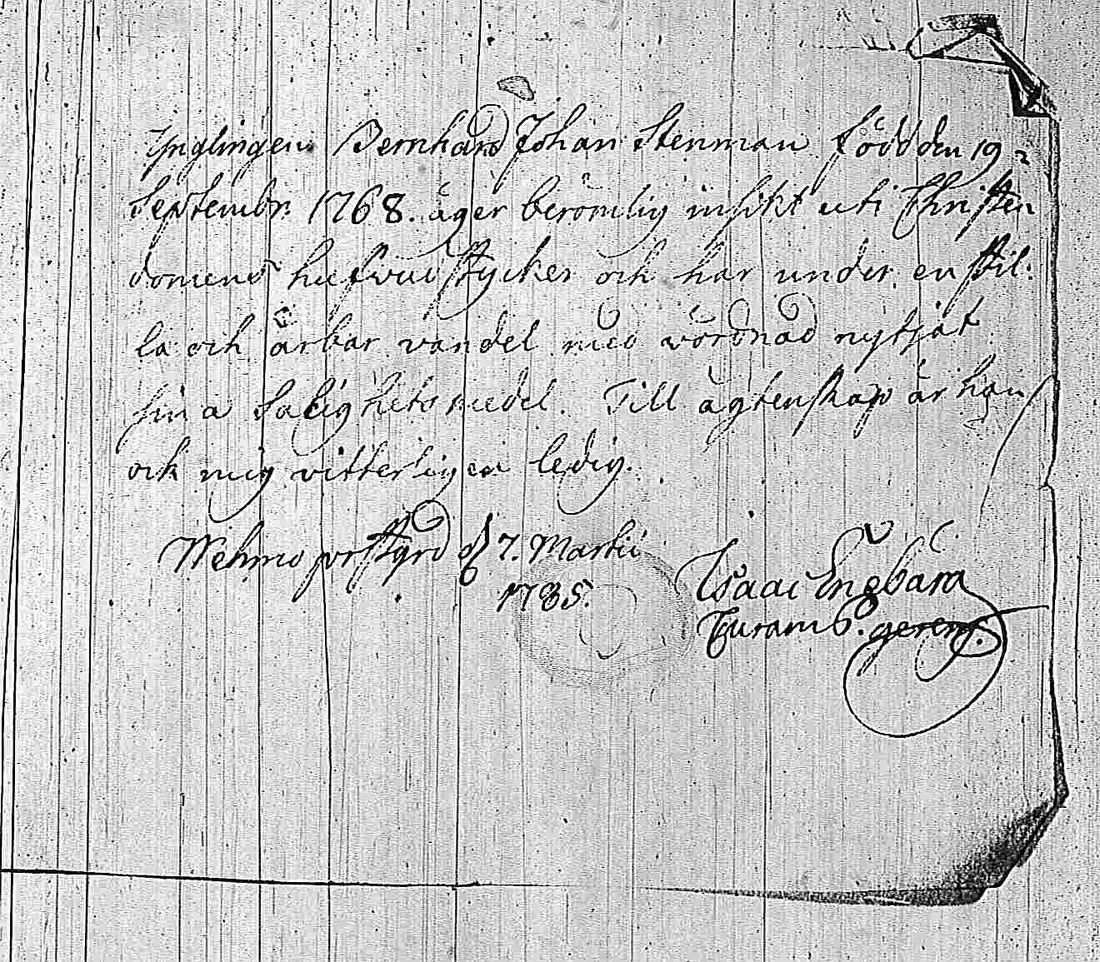 Ynglingen Bernhard Johan Stenman född den 19
Septembr. 1768. äger berömlig insikt uti Christen
domens hufvudstycken och har under en stil-
la och ärbar vandel med vördnad nytjat
sina Salighetsmedel. Till ägtenskap är han
ock mig vitterligen ledig.
Wehmo prstgrd d 7. Martii
1785.
Isaac
Curam P. gerens.